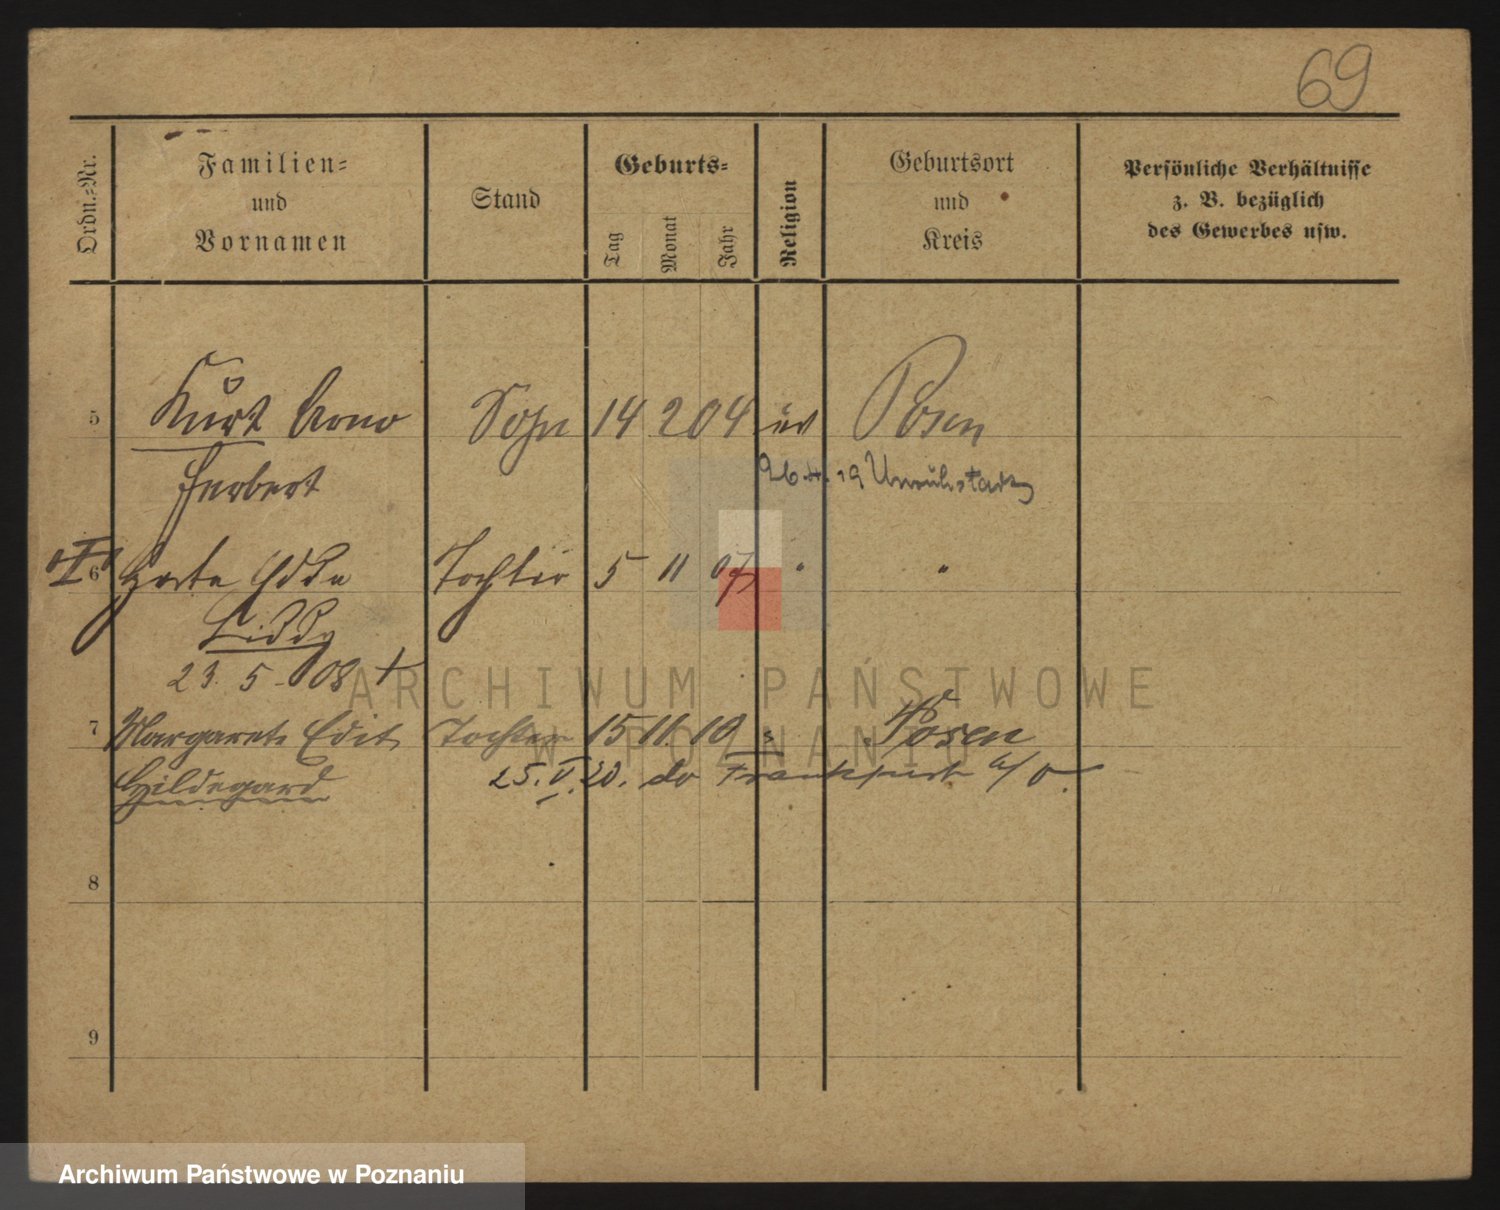 69
Ordn.-Nr.
Familien-
und
Vornamen
Stand
Geburts-
Tag
Monat
Jahr
Religion
Geburtsort
und
Kreis
Persönliche Verhältnisse
z. B. bezüglich
des Gewerbes usw.
5 Kurt Arno Sohn 14 2 04 ev Posen
Herbert 26.4.19 Unruhstadt
6 Herta Tochter 5 11 07 " "
23. 5. 08 †
ARCHIWUM PAŃSTWOWE
7 Margarete Edit Tochter 15 11. 10 " Posen
W POZNANIU
Hildegard 25. V. 20. do Frankfurt a/O.
8
9
Archiwum Państwowe w Poznaniu